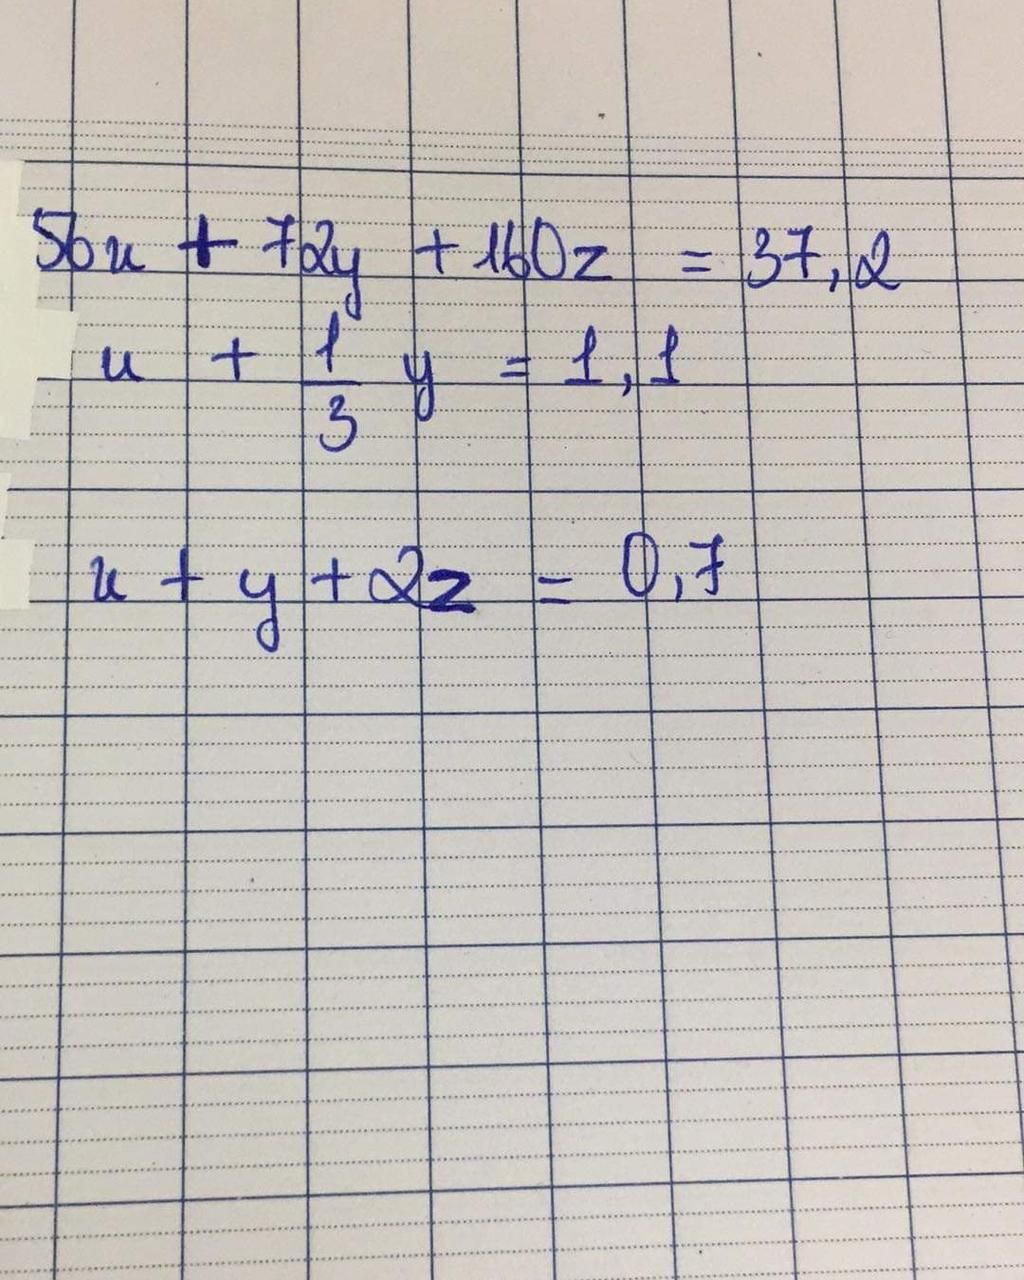 56x + 72y + 160z = 37,2
x + 1/3 y = 1,1
x + y + 2z = 0,7